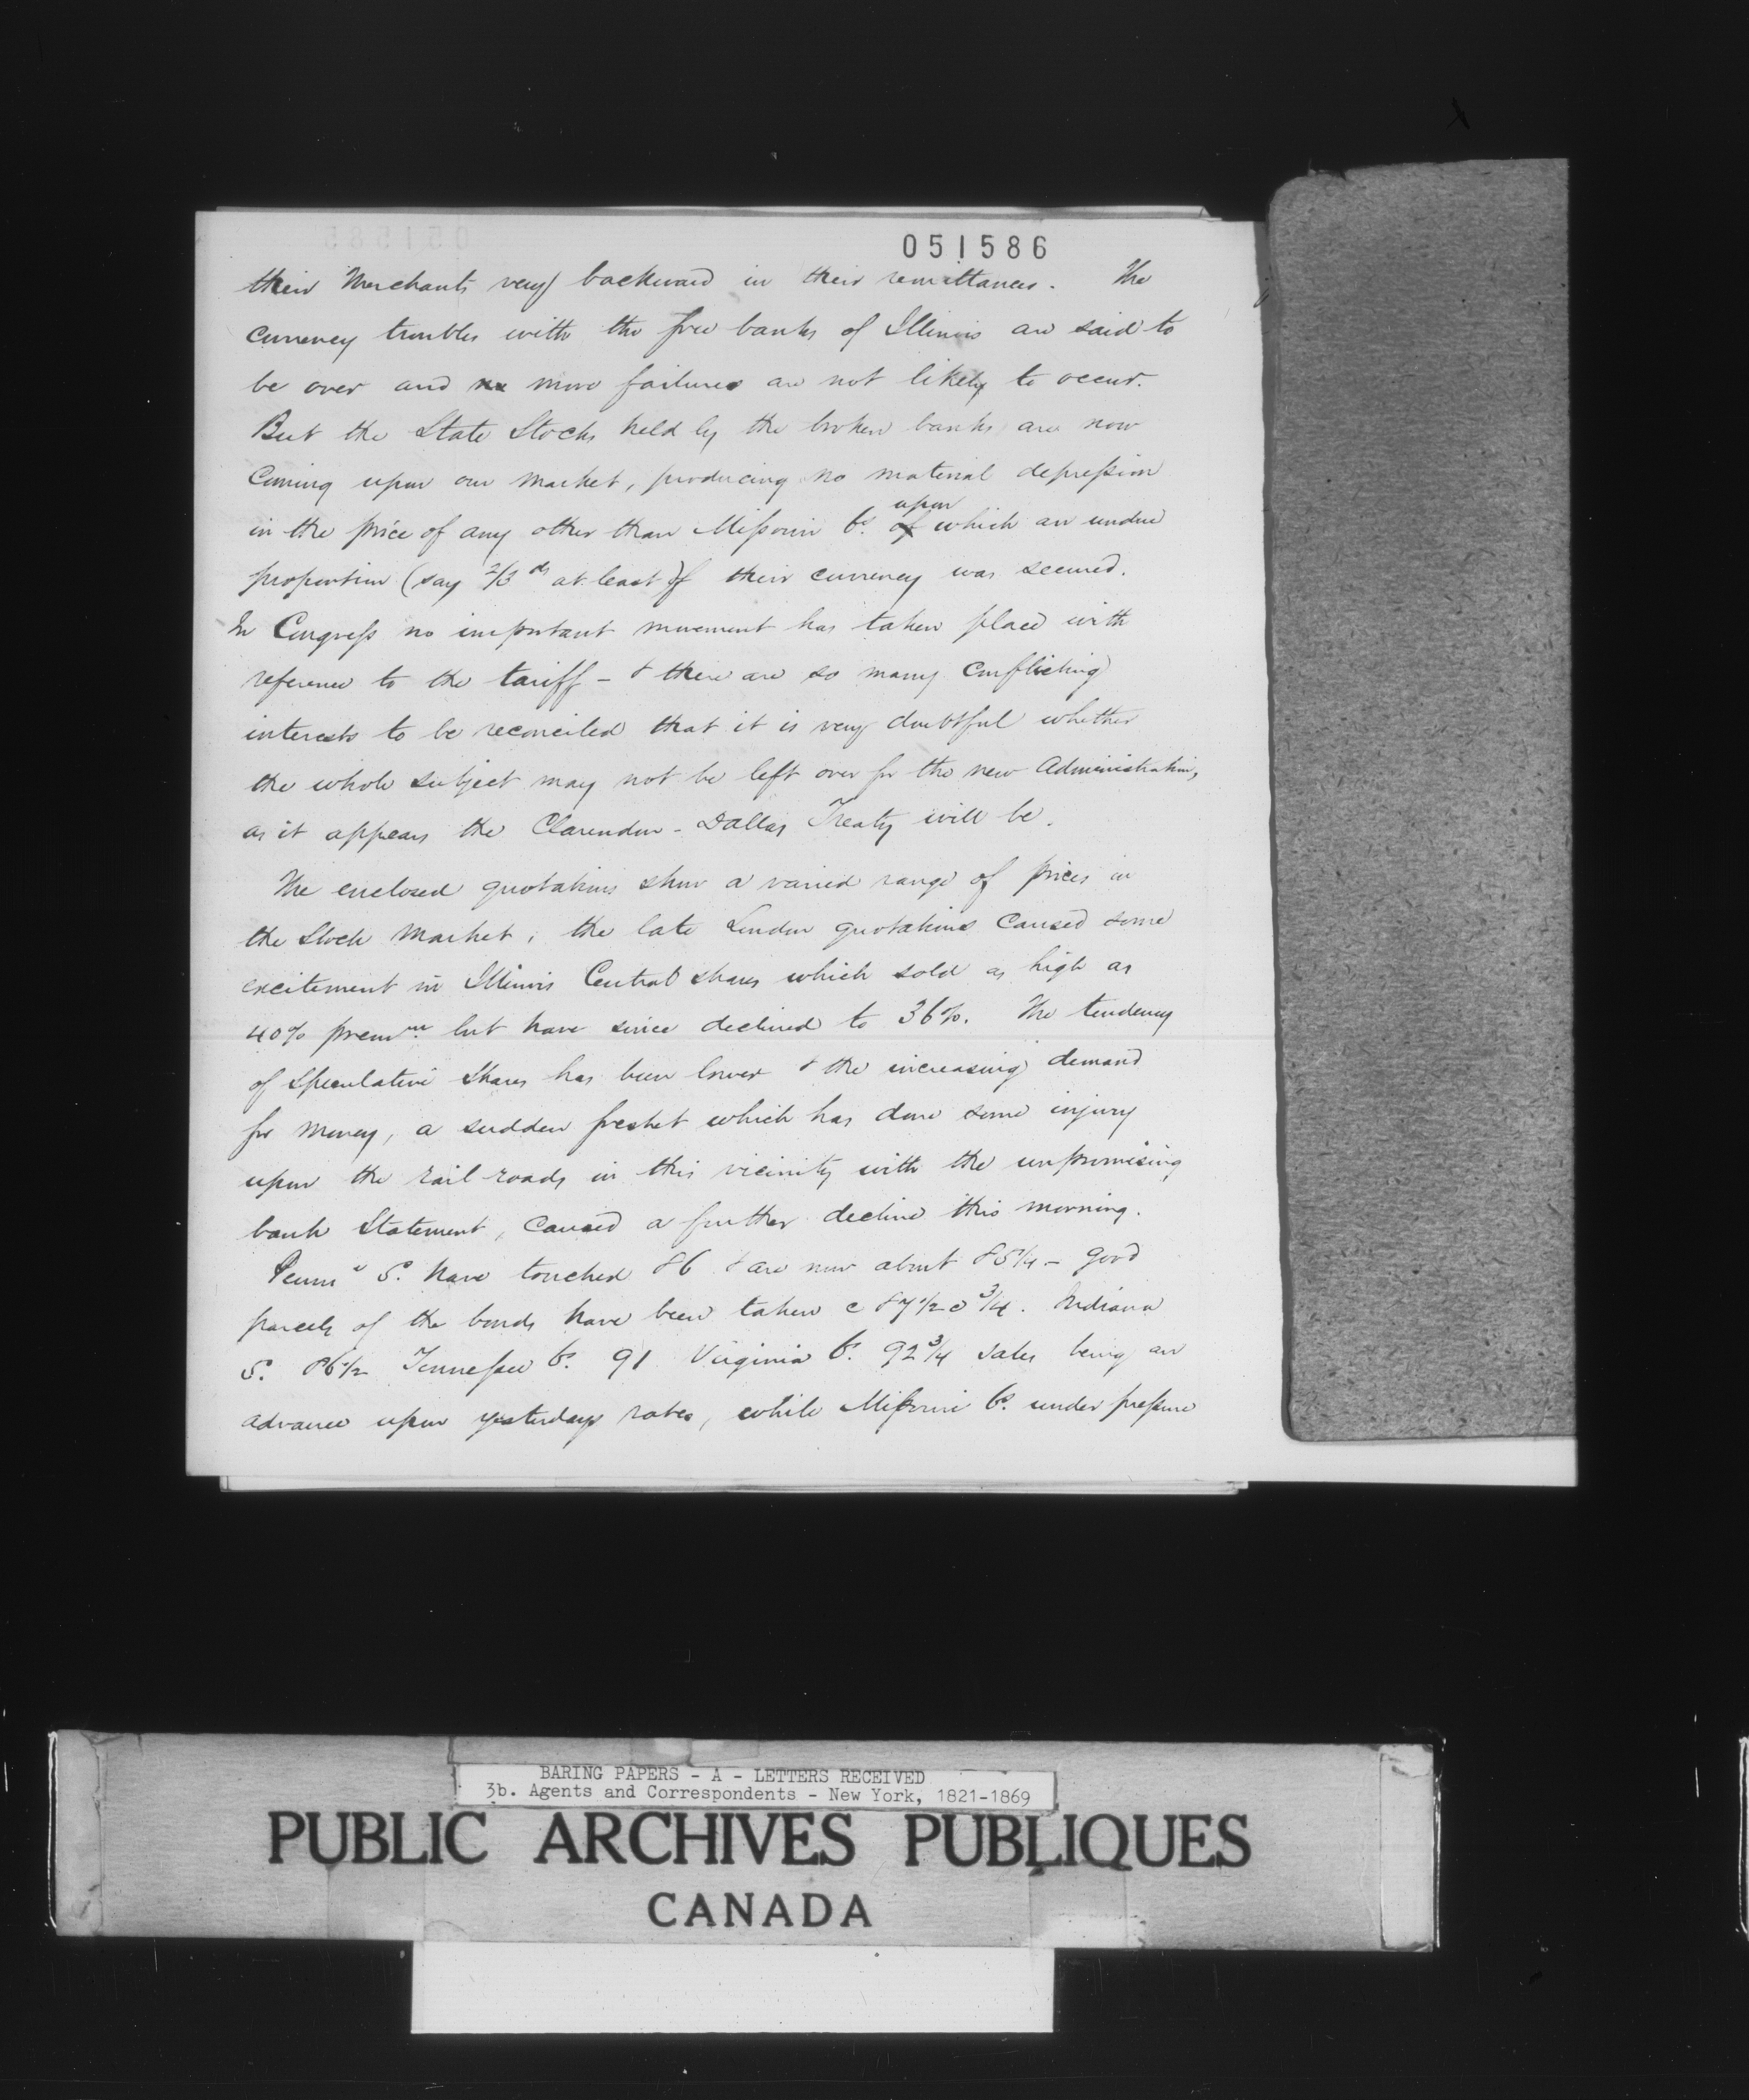 051586
their Merchants very backward in their remittances. The
currency troubles with the free banks of Illinois are said to
be over and more failures are not likely to occur.
But the State Stocks held by the broken banks are now
Coming upon our market, producing no material depression
in the price of any other than Missouri 6s. upon which an undue
proportion (say 2/3ds at least) of their currency was secured.
In Congress no important movement has taken place with
reference to the tariff - & there are so many Conflicting
interests to be reconciled that it is very doubtful whether
the whole subject may not be left over for the new Administration,
as it appears the Clarendon - Dallas Treaty will be.
The enclosed quotations show a varied range of prices in
the Stock Market, the late London quotations Caused some
excitement in Illinois Central shares which sold as high as
40% premm. but have since declined to 36%. The tendency
of Speculative Shares has been lower & the increasing demand
for Money, a sudden freshet which has done some injury
upon the rail-roads in this vicinity with the unpromising
bank Statement, Caused a further decline this morning.
Penna 5s. have touched 86 & are now about 85 1/4 - good
parcels of the bonds have been taken @ 87 1/2 @ 3/4. Indiana
5s. 86 1/2 Tennessee 6s. 91 Virginia 6s. 92 3/4 Sales being an
advance upon yesterdays rates, while Missouri 6s. under pressure
BARING PAPERS - A - LETTERS RECEIVED
3b. Agents and Correspondents - New York, 1821-1869
PUBLIC ARCHIVES PUBLIQUES
CANADA